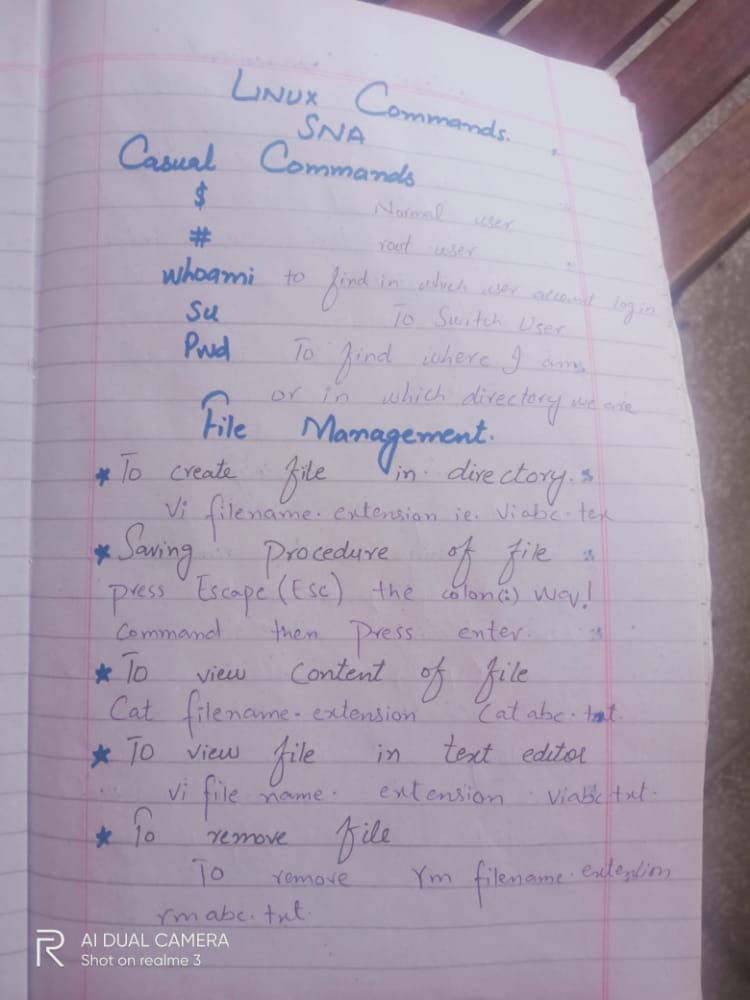 LINUX Commands.
SNA
Casual Commands
$ Normal user
# root user
whoami to find in which user account login
Su To Switch User
Pwd To find where I am
or in which directory we are
File Management.
★ To create file in directory.
Vi filename.extension ie. Vi abc.tex
★ Saving Procedure of file
press Escape (Esc) the colon(:) wq!
Command then Press enter.
★ To view Content of file
Cat filename.extension Cat abc.txt.
★ To view file in text editor
Vi file name. extension vi abc txt.
★ To remove file
To remove rm filename.extention
rm abc.txt.
R AI DUAL CAMERA
Shot on realme 3